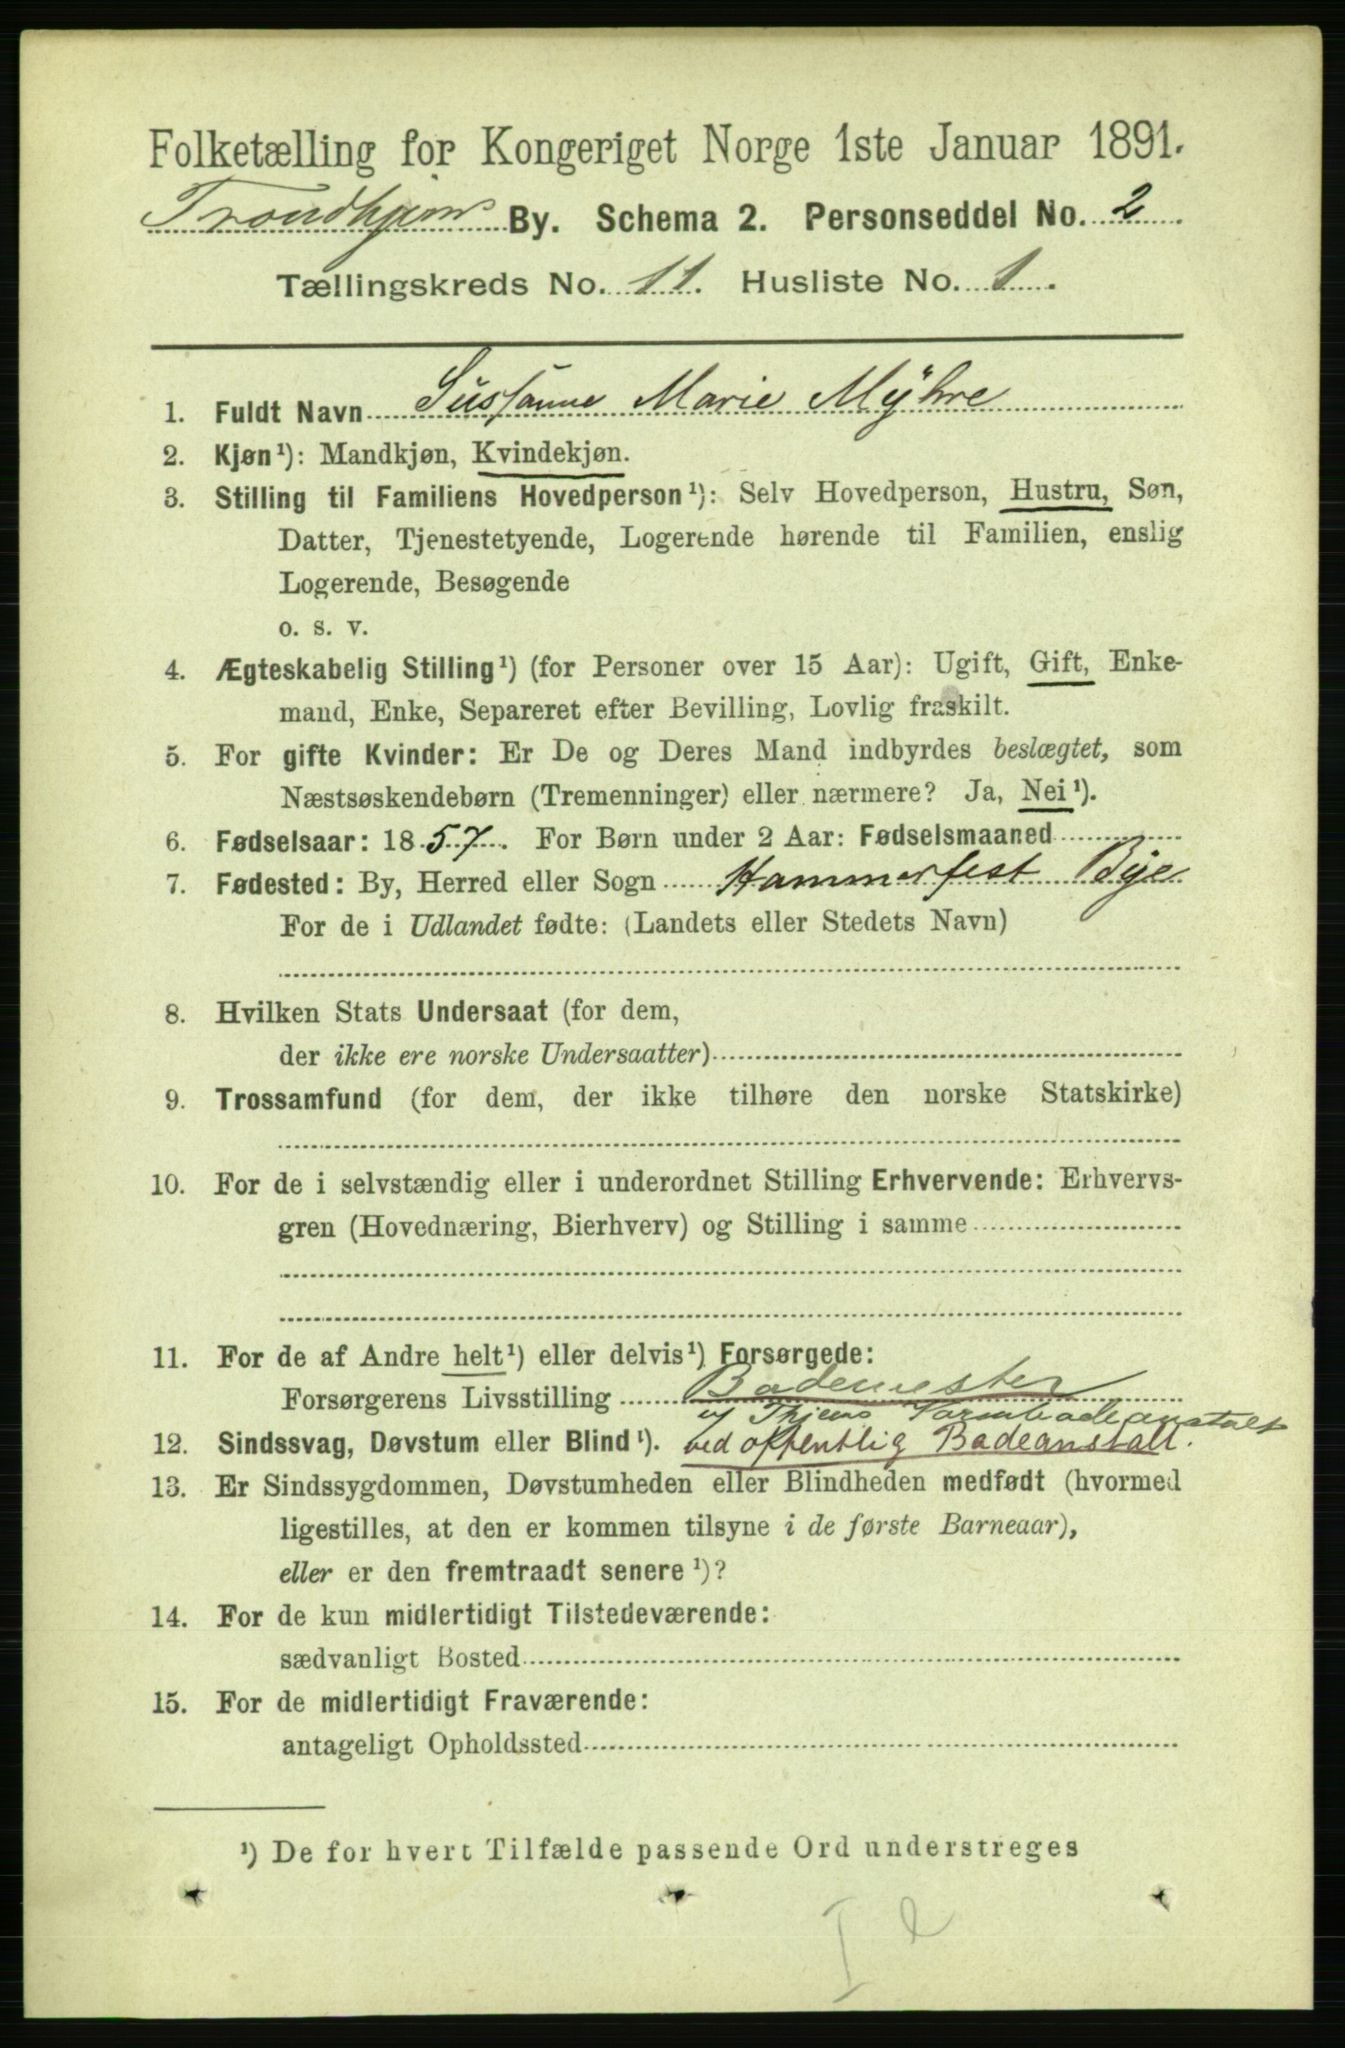 Folketælling for Kongeriget Norge 1ste Januar 1891.
Trondhjems By. Schema 2. Personseddel No. 2
Tællingskreds No. 11. Husliste No. 1.
1. Fuldt Navn Sussanne Marie Mÿhre
2. Kjøn¹): Mandkjøn, Kvindekjøn.
3. Stilling til Familiens Hovedperson¹): Selv Hovedperson, Hustru, Søn,
Datter, Tjenestetyende, Logerende hørende til Familien, enslig
Logerende, Besøgende
o. s. v.
4. Ægteskabelig Stilling¹) (for Personer over 15 Aar): Ugift, Gift, Enke-
mand, Enke, Separeret efter Bevilling, Lovlig fraskilt.
5. For gifte Kvinder: Er De og Deres Mand indbyrdes beslægtet, som
Næstsøskendebørn (Tremenninger) eller nærmere? Ja, Nei¹).
6. Fødselsaar: 1857. For Børn under 2 Aar: Fødselsmaaned
7. Fødested: By, Herred eller Sogn Hammerfest Bye
For de i Udlandet fødte: (Landets eller Stedets Navn)
8. Hvilken Stats Undersaat (for dem,
der ikke ere norske Undersaatter)
9. Trossamfund (for dem, der ikke tilhøre den norske Statskirke)
10. For de i selvstændig eller i underordnet Stilling Erhvervende: Erhvervs-
gren (Hovednæring, Bierhverv) og Stilling i samme
11. For de af Andre helt¹) eller delvis¹) Forsørgede:
Forsørgerens Livsstilling Bademester
Varmbadeanstalt
12. Sindssvag, Døvstum eller Blind¹). ved offentlig Badeanstalt.
13. Er Sindssygdommen, Døvstumheden eller Blindheden medfødt (hvormed
ligestilles, at den er kommen tilsyne i de første Barneaar),
eller er den fremtraadt senere¹)?
14. For de kun midlertidigt Tilstedeværende:
sædvanligt Bosted
15. For de midlertidigt Fraværende:
antageligt Opholdssted
¹) De for hvert Tilfælde passende Ord understreges